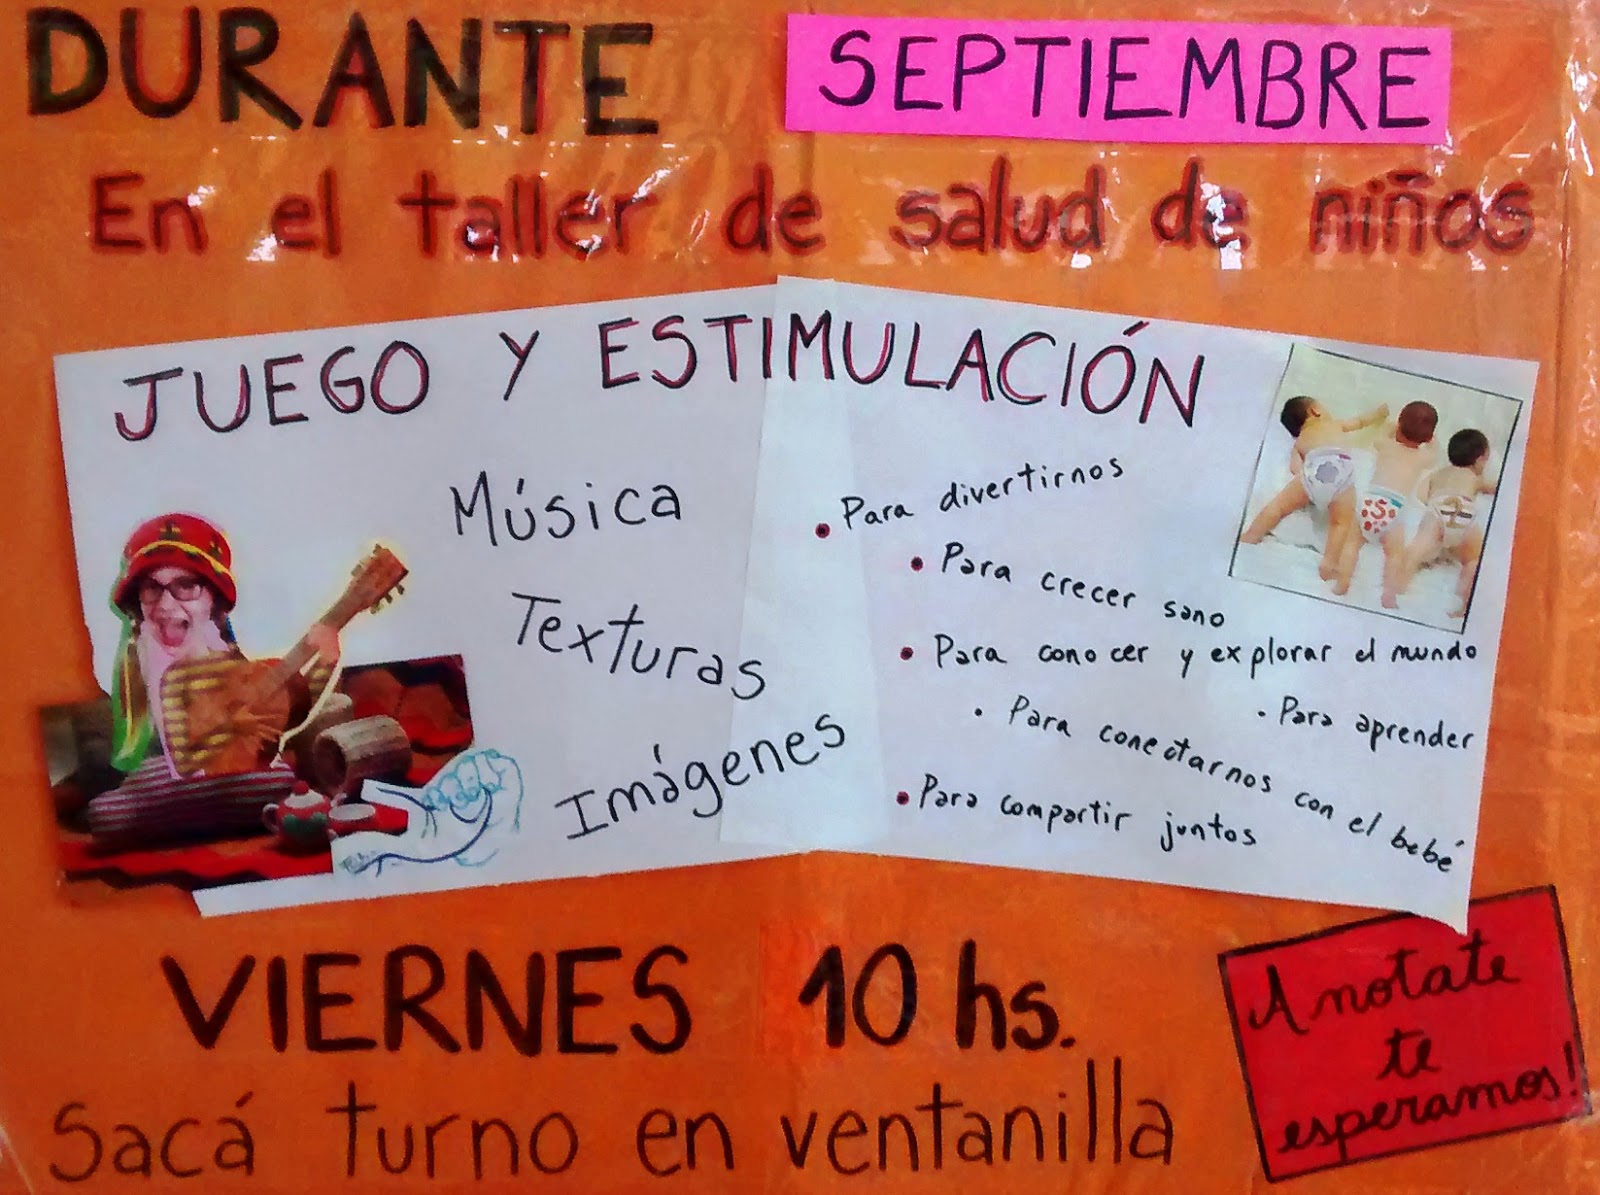 DURANTE SEPTIEMBRE
En el taller de salud de niños
JUEGO Y ESTIMULACIÓN
Música
Texturas
Imágenes
• Para divertirnos
• Para crecer sano
• Para conocer y explorar el mundo
• Para aprender
• Para conectarnos con el bebé
• Para compartir juntos
VIERNES 10 hs.
Sacá turno en ventanilla
Anotate
te
esperamos!